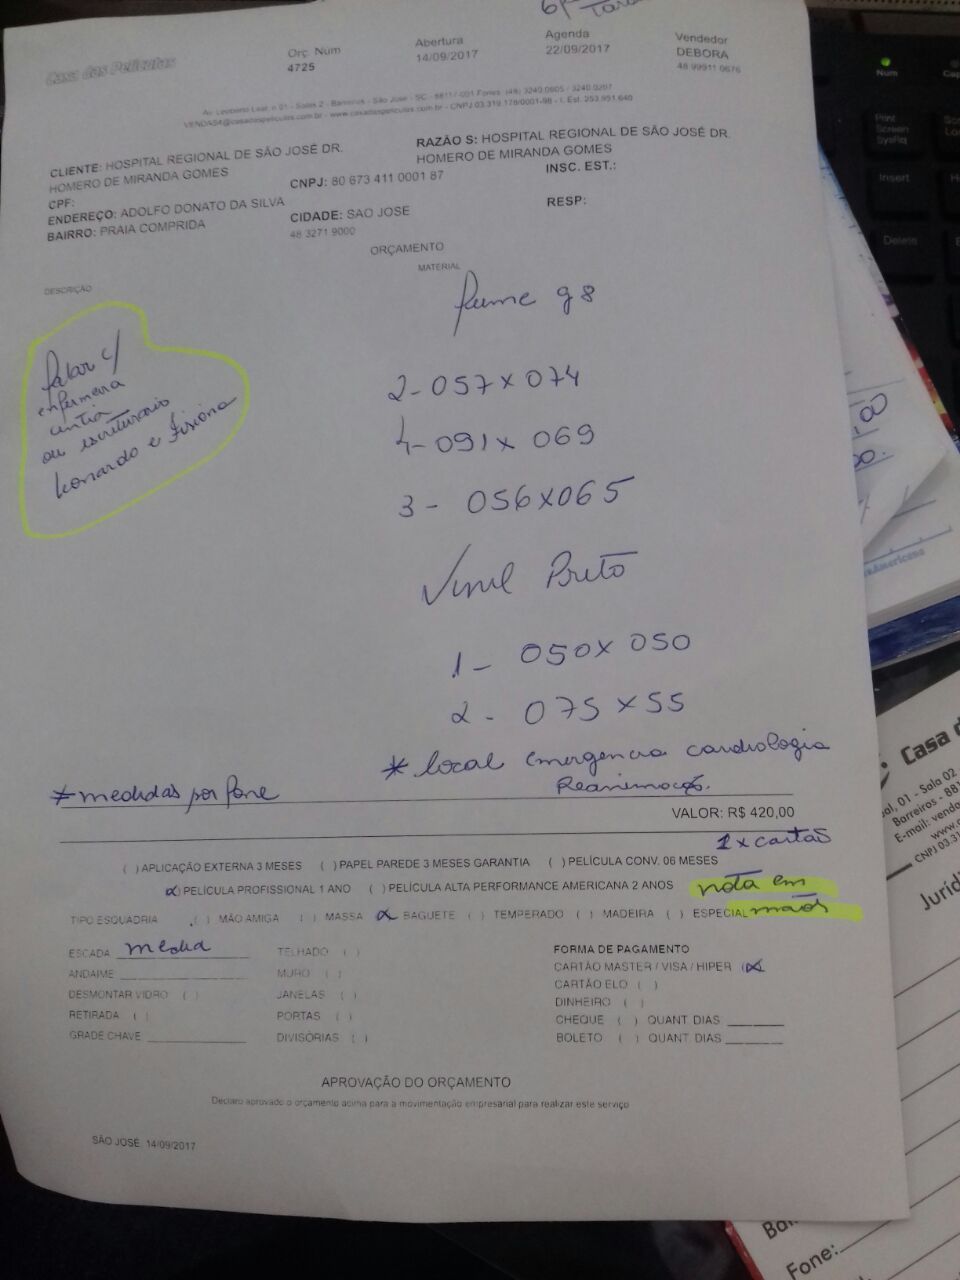 Casa das Películas
Orç Num
4725
Abertura
14/09/2017
Agenda
22/09/2017
Vendedor
DEBORA
48 99911 0676
Av. Leoberto Leal, n 01 - Salas 2 - Barreiros - São José - SC - 88117-001 Fones: (48) 3240.0805 / 3240.0207
VENDAS4@casadaspeliculas.com.br - www.casadaspeliculas.com.br - CNPJ 03.319.178/0001-98 - I. Est. 253.951.640
CLIENTE: HOSPITAL REGIONAL DE SÃO JOSÉ DR.
HOMERO DE MIRANDA GOMES
RAZÃO S: HOSPITAL REGIONAL DE SÃO JOSÉ DR.
HOMERO DE MIRANDA GOMES
CPF:
CNPJ: 80 673 411 0001 87
INSC. EST.:
ENDEREÇO: ADOLFO DONATO DA SILVA
BAIRRO: PRAIA COMPRIDA
CIDADE: SAO JOSE
48 3271 9000
RESP:
ORÇAMENTO
DESCRIÇÃO
MATERIAL
fume g8
falar c/
enfermeira
cintia
ou escriturario
leonardo e
2- 057 x 074
4- 091 x 069
3 - 056x065
Vinil Preto
1 - 050x 050
2 - 075 x 55
* local emergencia cardiologia
* medidas por fone
VALOR: R$ 420,00
1 x cartão
( ) APLICAÇÃO EXTERNA 3 MESES ( ) PAPEL PAREDE 3 MESES GARANTIA ( ) PELÍCULA CONV. 06 MESES
(x) PELÍCULA PROFISSIONAL 1 ANO ( ) PELÍCULA ALTA PERFORMANCE AMERICANA 2 ANOS nota em
TIPO ESQUADRIA ( ) MÃO AMIGA ( ) MASSA (x) BAGUETE ( ) TEMPERADO ( ) MADEIRA ( ) ESPECIAL mãos
ESCADA media
TELHADO ( )
FORMA DE PAGAMENTO
ANDAIME
MURO ( )
CARTÃO MASTER / VISA / HIPER (x)
DESMONTAR VIDRO ( )
JANELAS ( )
CARTÃO ELO ( )
DINHEIRO ( )
RETIRADA ( )
PORTAS ( )
CHEQUE ( ) QUANT DIAS
GRADE CHAVE
DIVISÓRIAS ( )
BOLETO ( ) QUANT DIAS
APROVAÇÃO DO ORÇAMENTO
Declaro aprovado o orçamento acima para a movimentação empresarial para realizar este serviço
SÃO JOSÉ, 14/09/2017
Num
Print
Screen
SysRq
Insert
Delete
,00
Casa d
al, 01 - Sala 02
Barreiros - 881
E-mail: venda
www.c
CNPJ 03.31
Juríd
Fone: